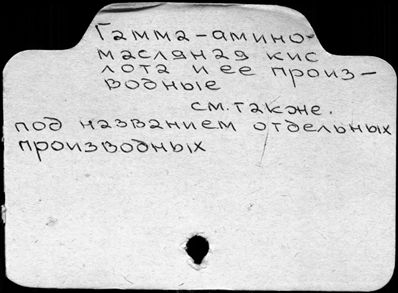 Гамма-амино-
масляная кис
лота и ее произ-
водные
см. также.
под названием отдельных
производных